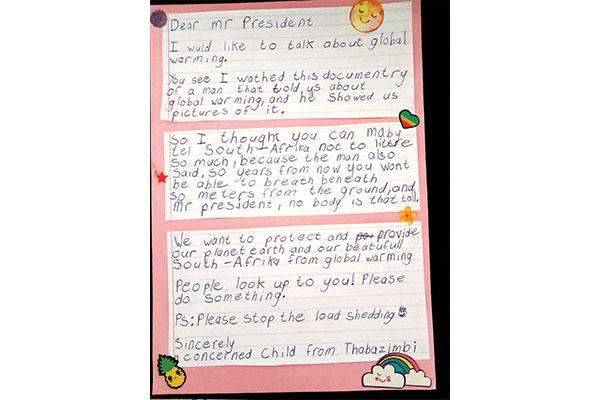 Dear mr President
I wuld like to talk about global
warming.
You see I wothed this documentry
of a man that told us about
global warming, and he showed us
pictures of it.
So I thought you can maby
tel South-Afrika not to littre
so much, because the man also
said, 50 years from now you wont
be able to breath beneath
50 meters from the ground, and
mr president, no body is that tall.
We want to protect and provide
our planet earth and our beatufull
South-Afrika from global warming
People look up to you! Please
do something.
Ps: Please stop the load shedding
Sincerely
concerned Child from Thabazimbi